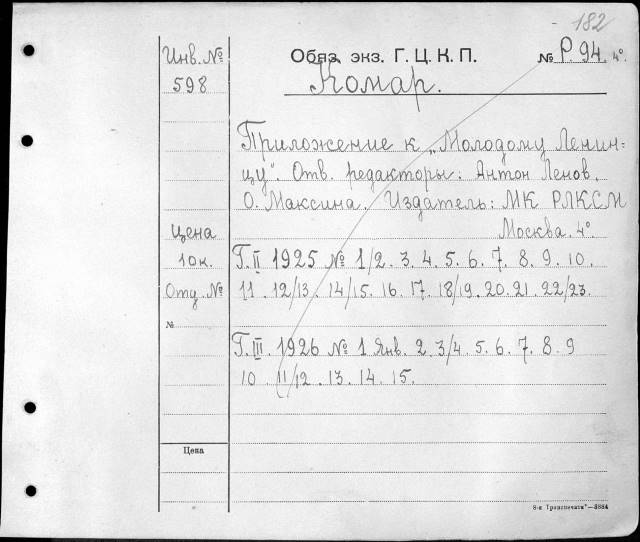 182
Инв. №
598
Обяз. экз. Г. Ц. К. П.
№ Р. 94. 4°
Комар.
Приложение к „Молодому Ленин=
цу". Отв. редакторы: Антон Ленов.
О. Максина. Издатель: МК РЛКСМ
Москва. 4°.
Цена
10 к.
Г. II 1925 № 1/2. 3. 4. 5. 6. 7. 8. 9. 10.
Отд. №
11. 12/13. 14/15. 16. 17. 18/19. 20. 21. 22/23.
№
Г. III. 1926 № 1 Янв. 2. 3/4. 5. 6. 7. 8. 9
10. 11/12. 13. 14. 15.
Цена
8-я Транспечати"—3884